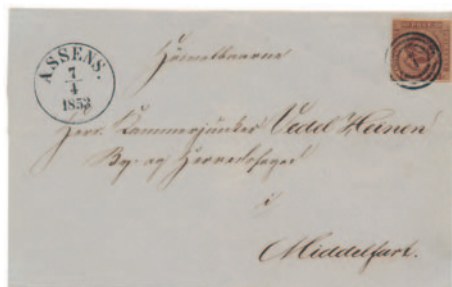 ASSENS.
7
4
1853
Herr Kammerjunker Vedel Heinen
By- og Herredsfoged
i
Middelfart.